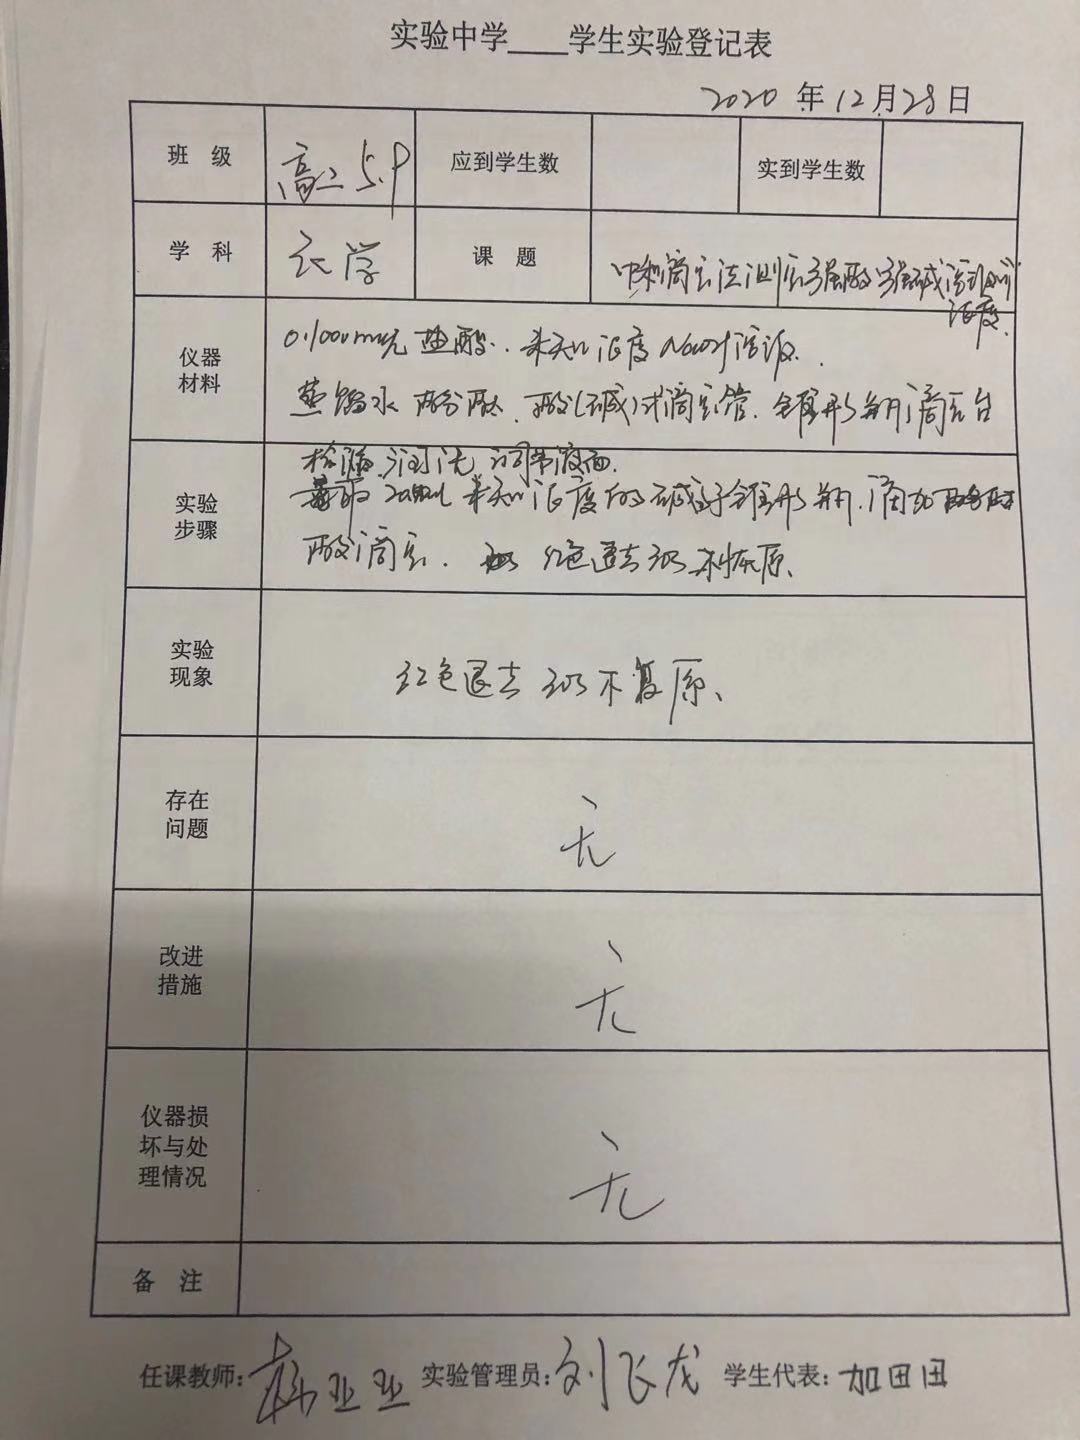 实验中学____学生实验登记表
2020 年 12 月 28 日
班 级 高二 5.9 应到学生数 实到学生数
学 科 化学 课 题 中和滴定法测定强酸强碱溶液的
浓度.
仪器
材料
0.1000mol/L 盐酸. 未知浓度 NaOH溶液.
蒸馏水 酚酞. 酸(碱)式滴定管. 锥形瓶 滴定台
实验
步骤
检漏 润洗 调节液面.
量取 未知浓度的碱于锥形瓶. 滴加酚酞
酸滴定. 红色退去 30s 不复原、
实验
现象
红色退去 30s 不复原、
存在
问题
无
改进
措施
无
仪器损
坏与处
理情况
无
备 注
任课教师: 亚亚 实验管理员: 刘飞龙 学生代表: 加田田